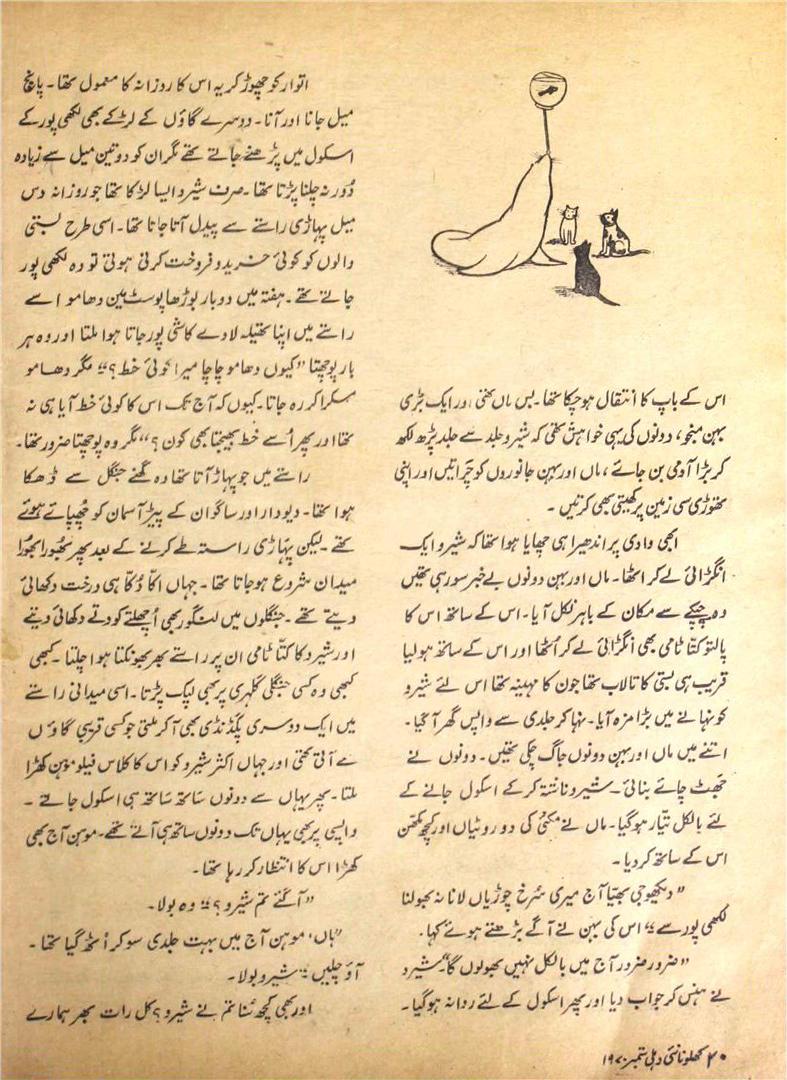 اس کے باپ کا انتقال ہوچکا تھا۔ بس ماں تھی اور ایک بڑی
بہن منجو، دونوں کی یہی خواہش تھی کہ شیرو جلد سے جلد پڑھ لکھ
کر بڑا آدمی بن جائے، ماں اور بہن جانوروں کو چَراتیں اور اپنی
تھوڑی سی زمین پر کھیتی بھی کرتیں ۔
ابھی وادی پر اندھیرا ہی چھایا ہوا تھا کہ شیرو ایک
انگڑائی لے کر اٹھا۔ ماں اور بہن دونوں بے خبر سو رہی تھیں
وہ چپکے سے مکان کے باہر نکل آیا۔ اس کے ساتھ اس کا
پالتو کتّا ٹامی بھی انگڑائی لے کر اُٹھا اور اس کے ساتھ ہو لیا
قریب ہی بستی کا تالاب تھا جون کا مہینہ تھا اس لئے شیرو
کو نہانے میں بڑا مزہ آیا۔ نہا کر جلدی سے واپس گھر آ گیا۔
اتنے میں ماں اور بہن دونوں جاگ چکی تھیں۔ دونوں نے
جھٹ چائے بنائی۔ شیرو ناشتہ کرکے اسکول جانے کے
لئے بالکل تیّار ہو گیا۔ ماں نے مکئی کی دو روٹیاں اور کچھ مکھن
اس کے ساتھ کر دیا۔
”دیکھو جی بھیّا آج میری سُرخ چوڑیاں لانا نہ بھولنا
لکھی پور سے“ اس کی بہن نے آگے بڑھتے ہوئے کہا۔
”ضرور ضرور آج میں بالکل نہیں بھولوں گا“ شیرو
نے ہنس کر جواب دیا اور پھر اسکول کے لئے روانہ ہو گیا۔
اتوار کو چھوڑ کر یہ اس کا روزانہ کا معمول تھا۔ پانچ
میل جانا اور آنا۔ دوسرے گاؤں کے لڑکے بھی لکھی پور کے
اسکول میں پڑھنے جاتے تھے مگر ان کو دو تین میل سے زیادہ
دُور نہ چلنا پڑتا تھا۔ صرف شیرو ایسا لڑکا تھا جو روزانہ دس
میل پہاڑی راستے سے پیدل آتا جاتا تھا۔ اسی طرح بستی
والوں کو کوئی خرید و فروخت کرنی ہوتی تو وہ لکھی پور
جاتے تھے۔ ہفتہ میں دو بار بوڑھا پوسٹ مین دھامو اسے
راستے میں اپنا تھیلہ لادے کاشی پور جاتا ہوا ملتا اور وہ ہر
بار پوچھتا ”کیوں دھامو چاچا میرا کوئی خط؟“ مگر دھامو
مسکرا کر رہ جاتا۔ کیوں کہ آج تک اس کا کوئی خط آیا ہی نہ
تھا اور پھر اُسے خط بھیجتا بھی کون؟ “ مگر وہ پوچھتا ضرور تھا۔
راستے میں جو پہاڑ آتا تھا وہ گھنے جنگل سے ڈھکا
ہوا تھا۔ دیودار اور ساگوان کے پیڑ آسمان کو چھپائے ہوئے
تھے۔ لیکن پہاڑی راستہ طے کرنے کے بعد پھر بھورا بھورا
میدان شروع ہو جاتا تھا۔ جہاں اکّا دُکّا ہی درخت دکھائی
دیتے تھے۔ جنگلوں میں لنگور بھی اُچھلتے کودتے دکھائی دیتے
اور شیرو کا کتّا ٹامی ان پر راستے بھر بھونکتا ہوا چلتا۔ کبھی
کبھی وہ کسی جنگلی گلہری پر بھی لپک پڑتا۔ اسی میدانی راستے
میں ایک دوسری پگڈنڈی بھی آ کر ملتی جو کسی قریبی گاؤں
سے آتی تھی اور جہاں اکثر شیرو کو اس کا کلاس فیلو موہن کھڑا
ملتا۔ پھر یہاں سے دونوں ساتھ ساتھ ہی اسکول جاتے ۔
واپسی پر بھی یہاں تک دونوں ساتھ ہی آتے تھے۔ موہن آج بھی
کھڑا اس کا انتظار کر رہا تھا۔
”آ گئے تم شیرو؟“ وہ بولا۔
”ہاں، موہن آج میں بہت جلدی سو کر اُٹھ گیا تھا۔
آؤ چلیں“ شیرو بولا۔
اور بھی کچھ سُنا تم نے شیرو؟ کل رات پھر ہمارے
۲۰ کھلونا نئی دہلی ستمبر ۱۹۷۰